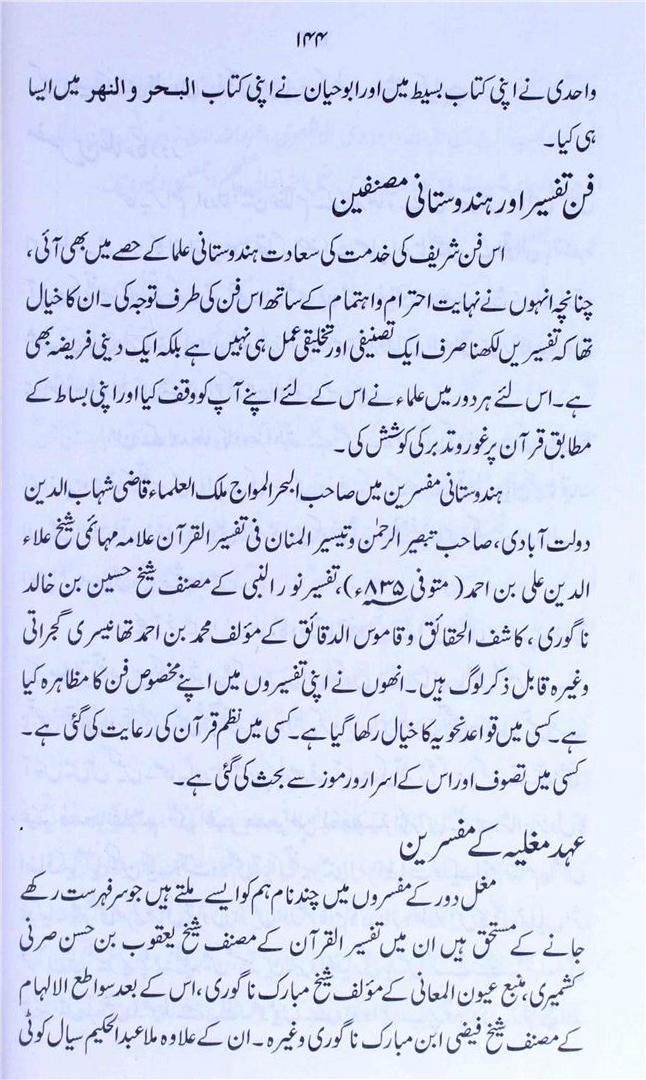 ۱۴۴
واحدی نے اپنی کتاب بسیط میں اور ابوحیان نے اپنی کتاب البحر والنہر میں ایسا
ہی کیا۔
فن تفسیر اور ہندوستانی مصنفین
اس فن شریف کی خدمت کی سعادت ہندوستانی علما کے حصے میں بھی آئی،
چنانچہ انہوں نے نہایت احترام و اہتمام کے ساتھ اس فن کی طرف توجہ کی۔ ان کا خیال
تھا کہ تفسیریں لکھنا صرف ایک تصنیفی اور تخلیقی عمل ہی نہیں ہے بلکہ ایک دینی فریضہ بھی
ہے۔ اس لئے ہر دور میں علماء نے اس کے لئے اپنے آپ کو وقف کیا اور اپنی بساط کے
مطابق قرآن پر غور و تدبر کی کوشش کی۔
ہندوستانی مفسرین میں صاحب البحر المواج ملک العلماء قاضی شہاب الدین
دولت آبادی، صاحب تبصیر الرحمٰن و تیسیر المنان فی تفسیر القرآن علامہ مہائمی شیخ علاء
الدین علی بن احمد (متوفی ۸۳۵ء)، تفسیر نور النبی کے مصنف شیخ حسین بن خالد
ناگوری، کاشف الحقائق و قاموس الدقائق کے مؤلف محمد بن احمد تھانیسری گجراتی
وغیرہ قابل ذکر لوگ ہیں۔ انھوں نے اپنی تفسیروں میں اپنے مخصوص فن کا مظاہرہ کیا
ہے۔ کسی میں قواعد نحویہ کا خیال رکھا گیا ہے۔ کسی میں نظم قرآن کی رعایت کی گئی ہے۔
کسی میں تصوف اور اس کے اسرار و رموز سے بحث کی گئی ہے۔
عہد مغلیہ کے مفسرین
مغل دور کے مفسروں میں چند نام ہم کو ایسے ملتے ہیں جو سر فہرست رکھے
جانے کے مستحق ہیں ان میں تفسیر القرآن کے مصنف شیخ یعقوب بن حسن صرفی
کشمیری، منبع عیون المعانی کے مؤلف شیخ مبارک ناگوری، اس کے بعد سواطع الالہام
کے مصنف شیخ فیضی ابن مبارک ناگوری وغیرہ۔ ان کے علاوہ ملا عبدالحکیم سیال کوٹی